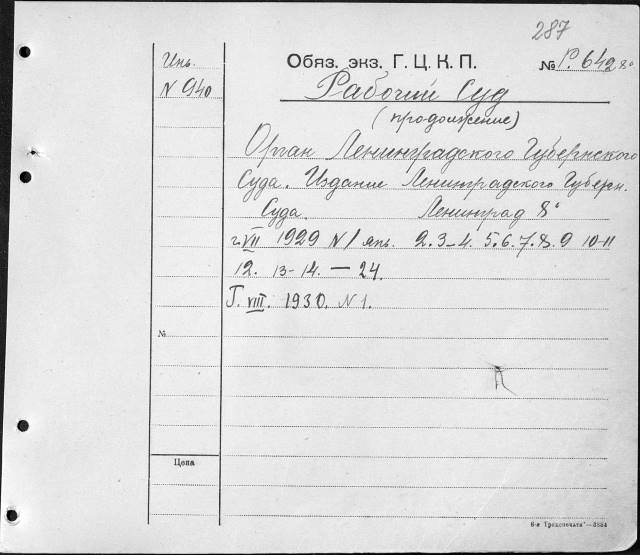 287
Инв. N 940
Обяз. экз. Г. Ц. К. П. № Р. 642 8°
Рабочий Суд
(продолжение)
Орган Ленинградского Губернского
Суда. Издание Ленинградского Губерн.
Суда. Ленинград 8°
г. VII 1929 N 1 янв. 2. 3-4. 5. 6. 7. 8. 9 10-11
12. 13-14. — 24.
Г. VIII. 1930. N 1.
№
Цена
6-я Транспечати — 3884